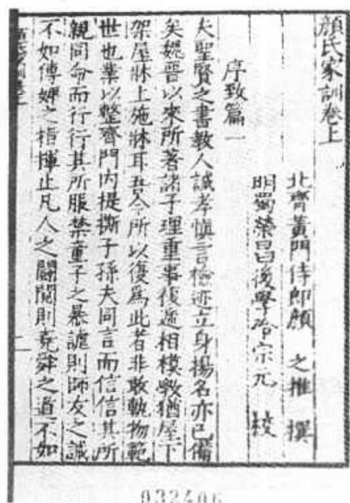 顏氏家訓卷上
北齊黃門侍郎顏之推 撰
明蜀榮昌後學冷宗元 校
序致篇一
夫聖賢之書教人誠孝慎言檢迹立身揚名亦已備
矣魏晉以來所著諸子理重事複遞相模斆猶屋下
架屋牀上施牀耳吾今所以復爲此者非敢軌物範
世也業以整齊門內提撕子孫夫同言而信信其所
親同命而行行其所服禁童子之暴謔則師友之誡
不如傅婢之指揮止凡人之鬭鬩則堯舜之道不如
032406